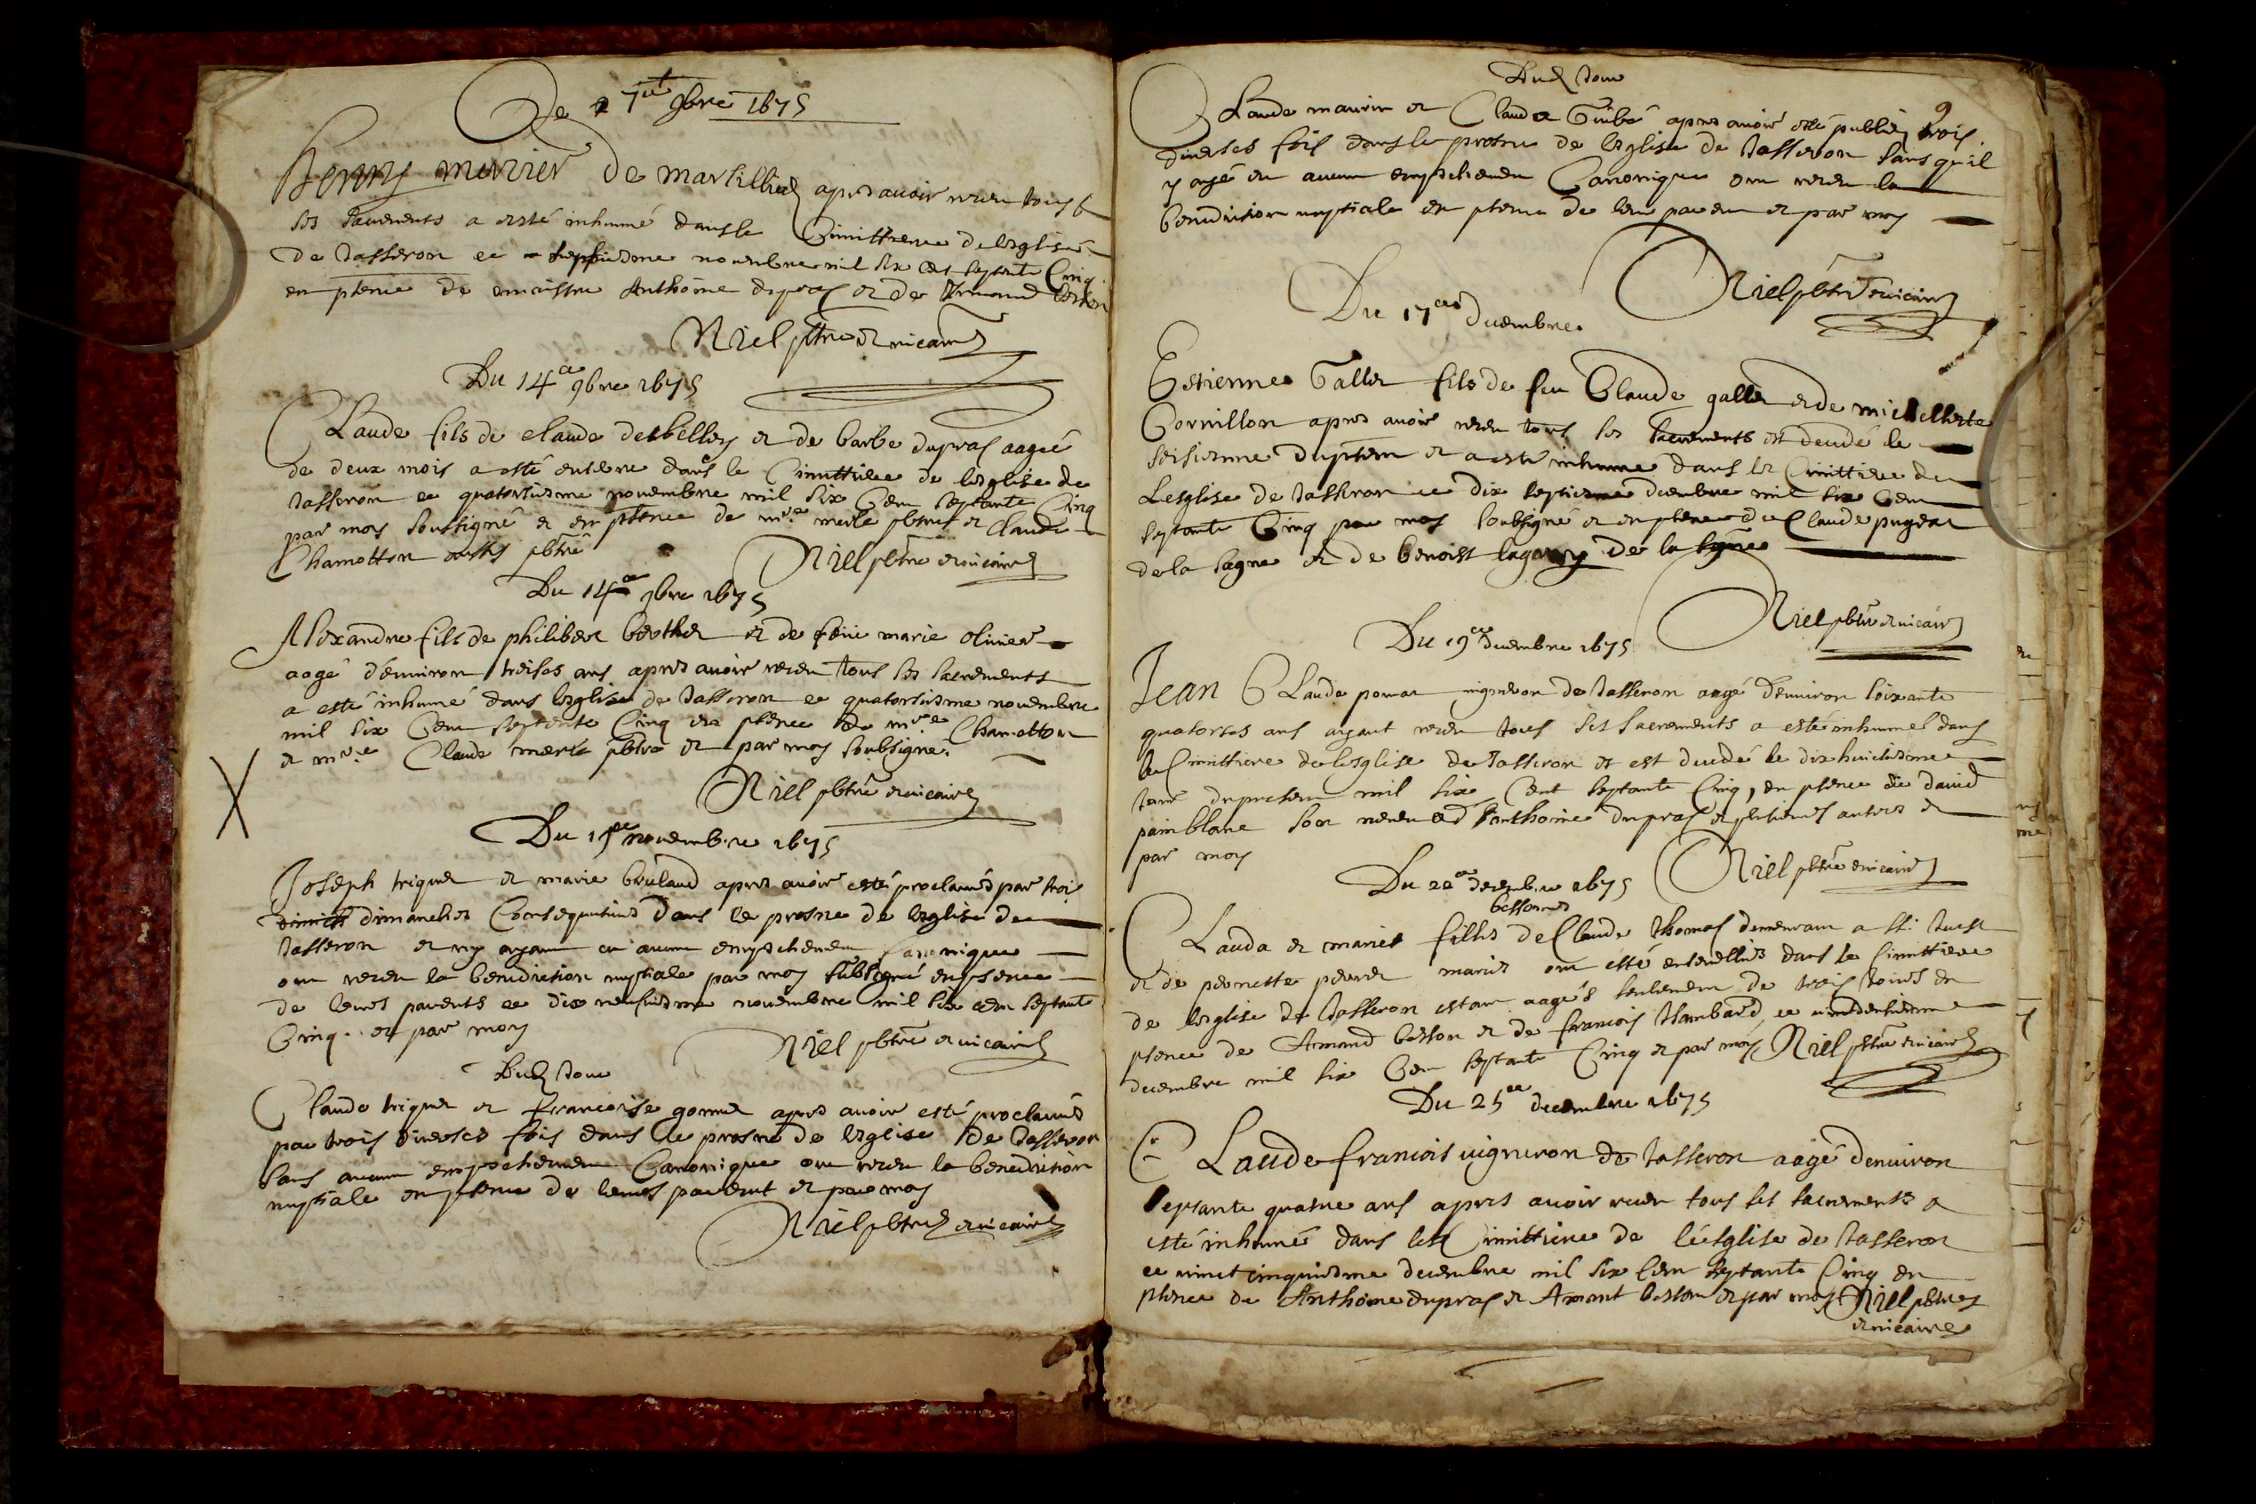 De 7e 9bre 1675
Henry murier de marsillied apres avoir receu tous
les sacrements a esté inhumé dans le Cimittiere de lesglise
de Jasseron ce septiesme novembre mil six cent septante Cinq
en pṡence de maistre Anthoine dupras et de Armand besson
Niel pbtre et vicaire
Du 14e 9bre 1675
Claude fils de claude desbelley et de barbe dupras aagé
de deux mois a esté enterré dans le Cimittiere de lesglise de
Jasseron ce quatorsiesme novembre mil six Cent septante Cinq
par moy soussigné et en pṡence de mre merle pbtre et Claude
Chamotton aussy pbtre
Niel pbtre et vicaire
Du 14e 9bre 1675
Alexandre fils de philibert berthet et de feüe marie olinier
aagé d'environ treises ans apres avoir receu tous les sacrements
a esté inhumé dans lesglise de Jasseron ce quatorsiesme novembre
mil six Cent septante Cinq en pṡence de mre Chamotton
et mre Claude merle pbtre et par moy soubsigné
Niel pbtre et vicaire
Du 19e novembre 1675
Joseph triquet et marie brulaud apres avoir esté proclamés par troi
dimanches Consequutives dans le prosne de lesglise de
Jasseron et ny ayant eu aucun empeschement canonique
ont receu la benediction nuptiale par moy subsigné en pṡence
de leurs parents ce dix neufviesme novembre mil six cent septante
Cinq et par moy
Niel pbtre et vicaire
Dud Jour
Claude triquet et francoise gonnet apres avoir esté proclamés
par trois diverses fois dans le prosne de lesglise de Jasseron
sans aucun empeschement Canonique ont receu la benediction
nuptiale en pṡence de leurs parent et par moy
Niel pbtre et vicaire
9
Dud Jour
Claude maurin et Clauda Guibé apres avoir esté publiez trois
diverses fois dans le prosne de lesglise de Jasseron sans quil
y ayé eu aucun empeschement Canonique ont receu la
benediction nuptiale en pṡence de leur parent et par moy
Niel pbtre et vicaire
Du 17e decembre
Estienne Gallet fils de feu Claude gallet et de michellette
Cornillon apres avoir receu tous les sacrements est decedé le
seisiesme du present et a esté inhumé dans le Cimittiere de
Lesglise de Jasseron ce dix septiesme decembre mil six Cent
septante Cinq par moy soubsigné et en pṡence de Claude pugeat
de la sagne et de benoist lagarry de la sagne
Niel pbtre et vicaire
Du 19e decembre 1675
Jean Claude ponat vigneron de Jasseron aagé d'environ soixante
quatorses ans ayant receu tous les sacrements a esté inhumé dans
le Cimittiere de lesglise de Jasseron et est decedé le dix huictiesme
Jour du present mil six Cent septante Cinq, en pṡence de david
painblanc son neveu et d'anthoine dupras et plusieurs autres et
par moy
Niel pbtre et vicaire
Du 22e decembre 1675
bessonnes
Clauda et marie filles de Claude thomas demeurant a st: Just
et de pernette perret mariés ont esté ensevellies dans le Cimittiere
de lesglise de Jasseron estant aagés seulement de trois Jours en
pṡence de Armand besson et de francois Hambard ce vintdeusieme
decembre mil six Cent septante Cinq et par moy Niel pbtre et vicaire
Du 25e decembre 1675
Claude francois vigneron de Jasseron aagé denviron
septante quatre ans apres avoir receu tous les sacrements a
esté inhumé dans les Cimittiere de léesglise de Jasseron
ce vinct cinquiesme decembre mil six Cent septante Cinq en
pṡence de Anthoine dupras et Armant besson et par moy Niel pbtre
et vicaire